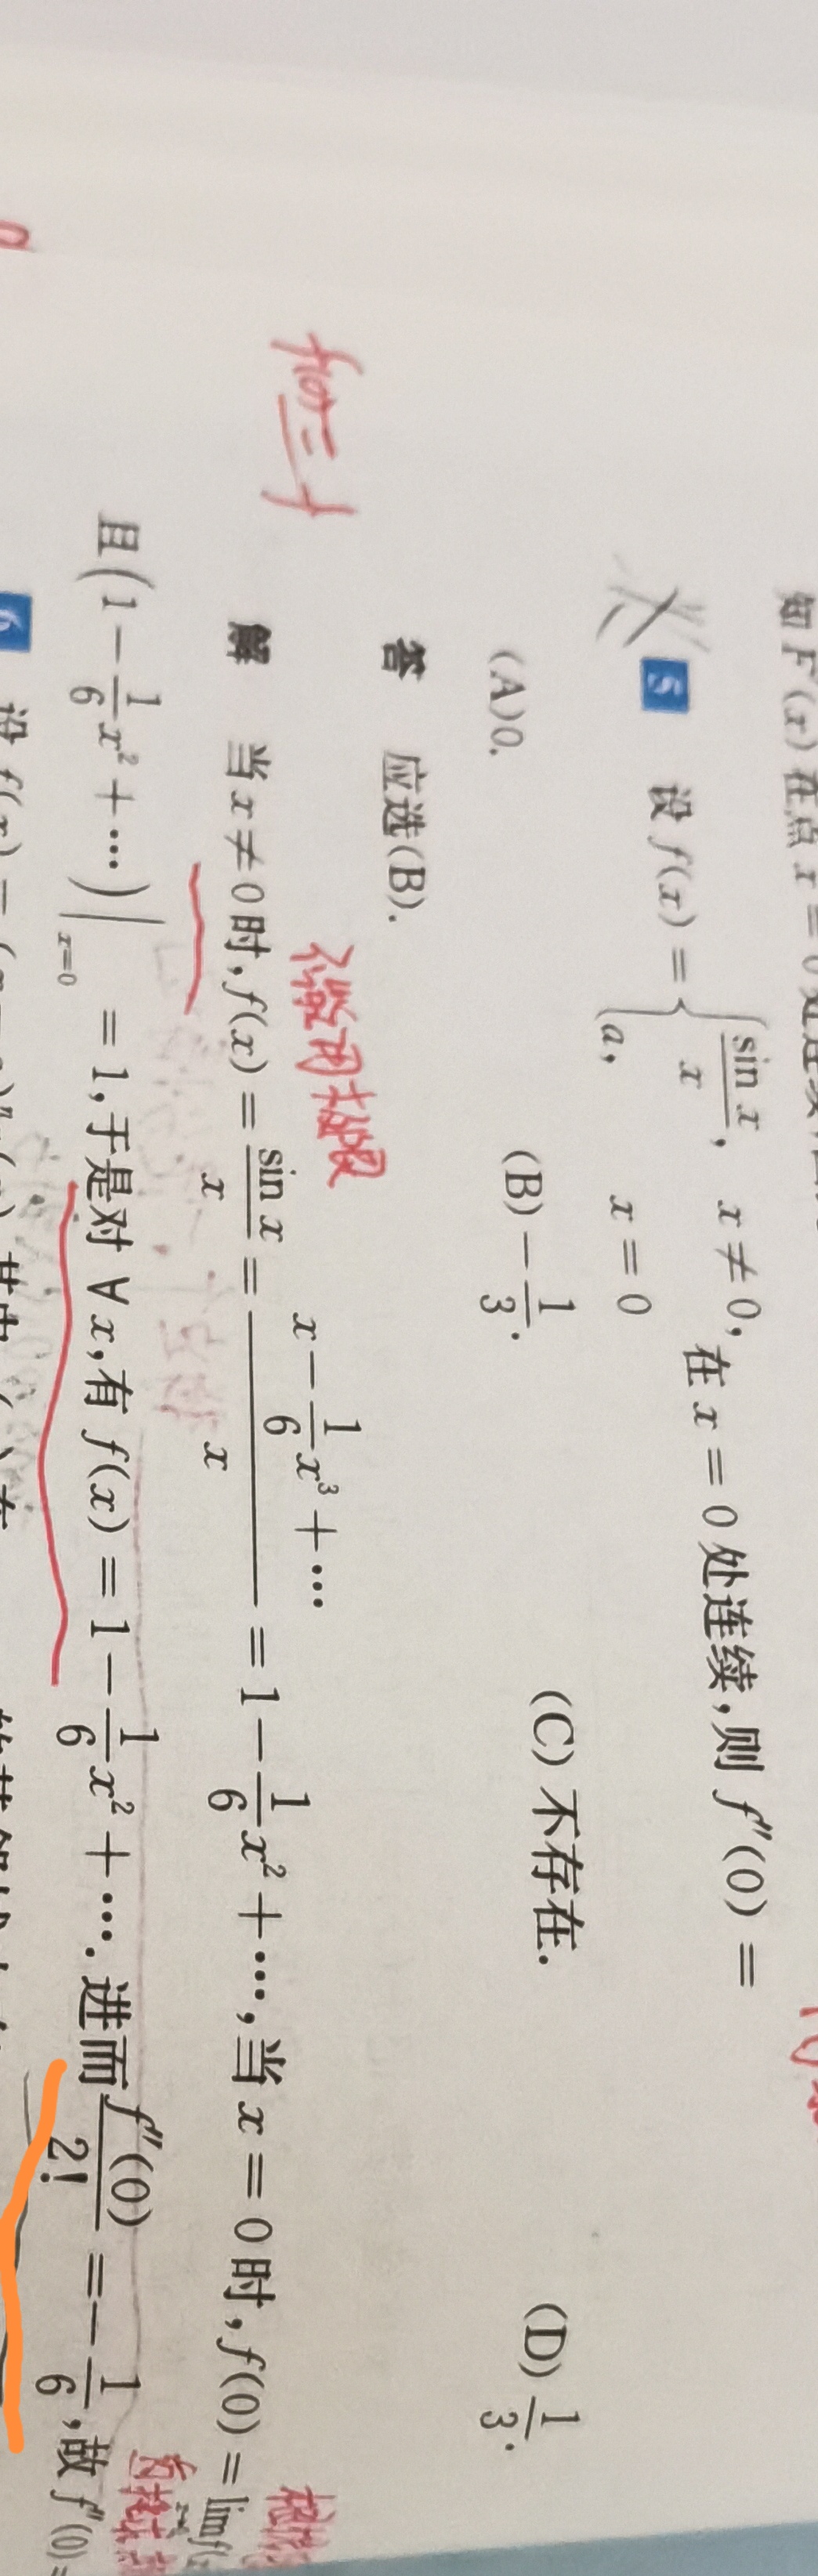 知 F'(x) 在点 x = 0 处连续
5 设 f(x) = { sin x / x, x ≠ 0,
a, x = 0
在 x = 0 处连续,则 f''(0) =
(A) 0. (B) -1/3. (C) 不存在. (D) 1/3.
答 应选(B).
f(0) = 1
解 当 x ≠ 0 时, f(x) = sin x / x = (x - 1/6 x³ + …) / x = 1 - 1/6 x² + …, 当 x = 0 时, f(0) = lim f(
且 (1 - 1/6 x² + …)|x=0 = 1, 于是对 ∀ x, 有 f(x) = 1 - 1/6 x² + …. 进而 f''(0)/2! = -1/6, 故 f''(0) =
6 设 f(x) =